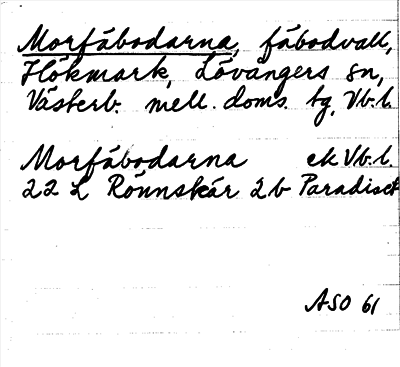 Morfäbodarna, fäbodvall,
Hökmark, Lövångers sn,
Västerb. mell. doms. tg, Vb.l.
Morfäbodarna ek Vb.l.
22 L Rönnskär 2b Paradiset
ASO 61